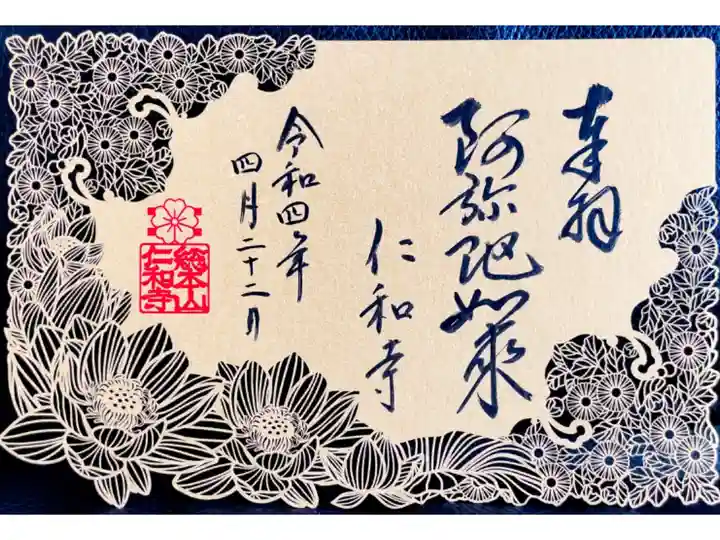 奉拝
阿弥陀如來
仁和寺
令和四年
四月二十二日
総本山
仁和寺